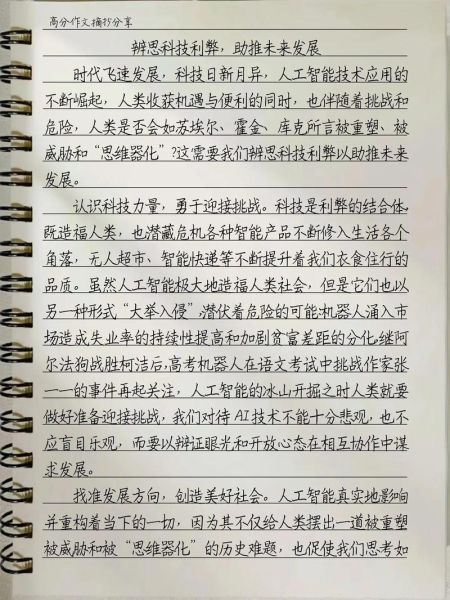 高分作文摘抄分享
辨思科技利弊，助推未来发展
时代飞速发展，科技日新月异，人工智能技术应用的
不断崛起，人类收获机遇与便利的同时，也伴随着挑战和
危险，人类是否会如苏埃尔、霍金、库克所言被重塑、被
威胁和“思维器化”?这需要我们辨思科技利弊以助推未来
发展。
认识科技力量，勇于迎接挑战。科技是利弊的结合体，
既造福人类，也潜藏危机各种智能产品不断修入生活各个
角落，无人超市、智能快递等不断提升着我们衣食住行的
品质。虽然人工智能极大地造福人类社会，但是它们也以
另一种形式“大举入侵”，潜伏着危险的可能：机器人涌入市
场造成失业率的持续性提高和加剧贫富差距的分化，继阿
尔法狗战胜柯洁后，高考机器人在语文考试中挑战作家张
一一的事件再起关注，人工智能的冰山开掘之时人类就要
做好准备迎接挑战，我们对待AI技术不能十分悲观，也不
应盲目乐观，而要以辩证眼光和开放心态在相互协作中谋
求发展。
找准发展方向，创造美好社会。人工智能真实地影响
并重构着当下的一切，因为其不仅给人类摆出一道被重塑
被威胁和被“思维器化”的历史难题，也促使我们思考如